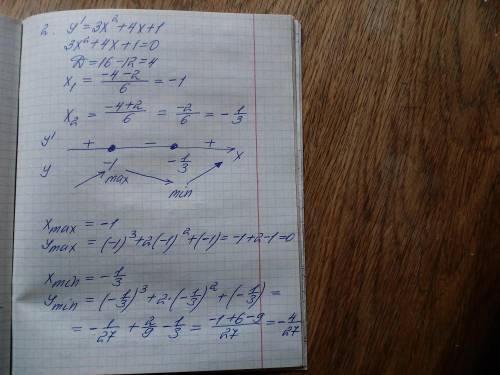 2. y' = 3x² + 4x + 1
3x² + 4x + 1 = 0
D = 16 - 12 = 4
x₁ = (-4 - 2)/6 = -1
x₂ = (-4 + 2)/6 = -2/6 = -1/3
y' + - + x
y -1 max -1/3 min
x max = -1
y max = (-1)³ + 2(-1)² + (-1) = -1 + 2 - 1 = 0
x min = -1/3
y min = (-1/3)³ + 2·(-1/3)² + (-1/3) =
= -1/27 + 2/9 - 1/3 = (-1 + 6 - 9)/27 = -4/27